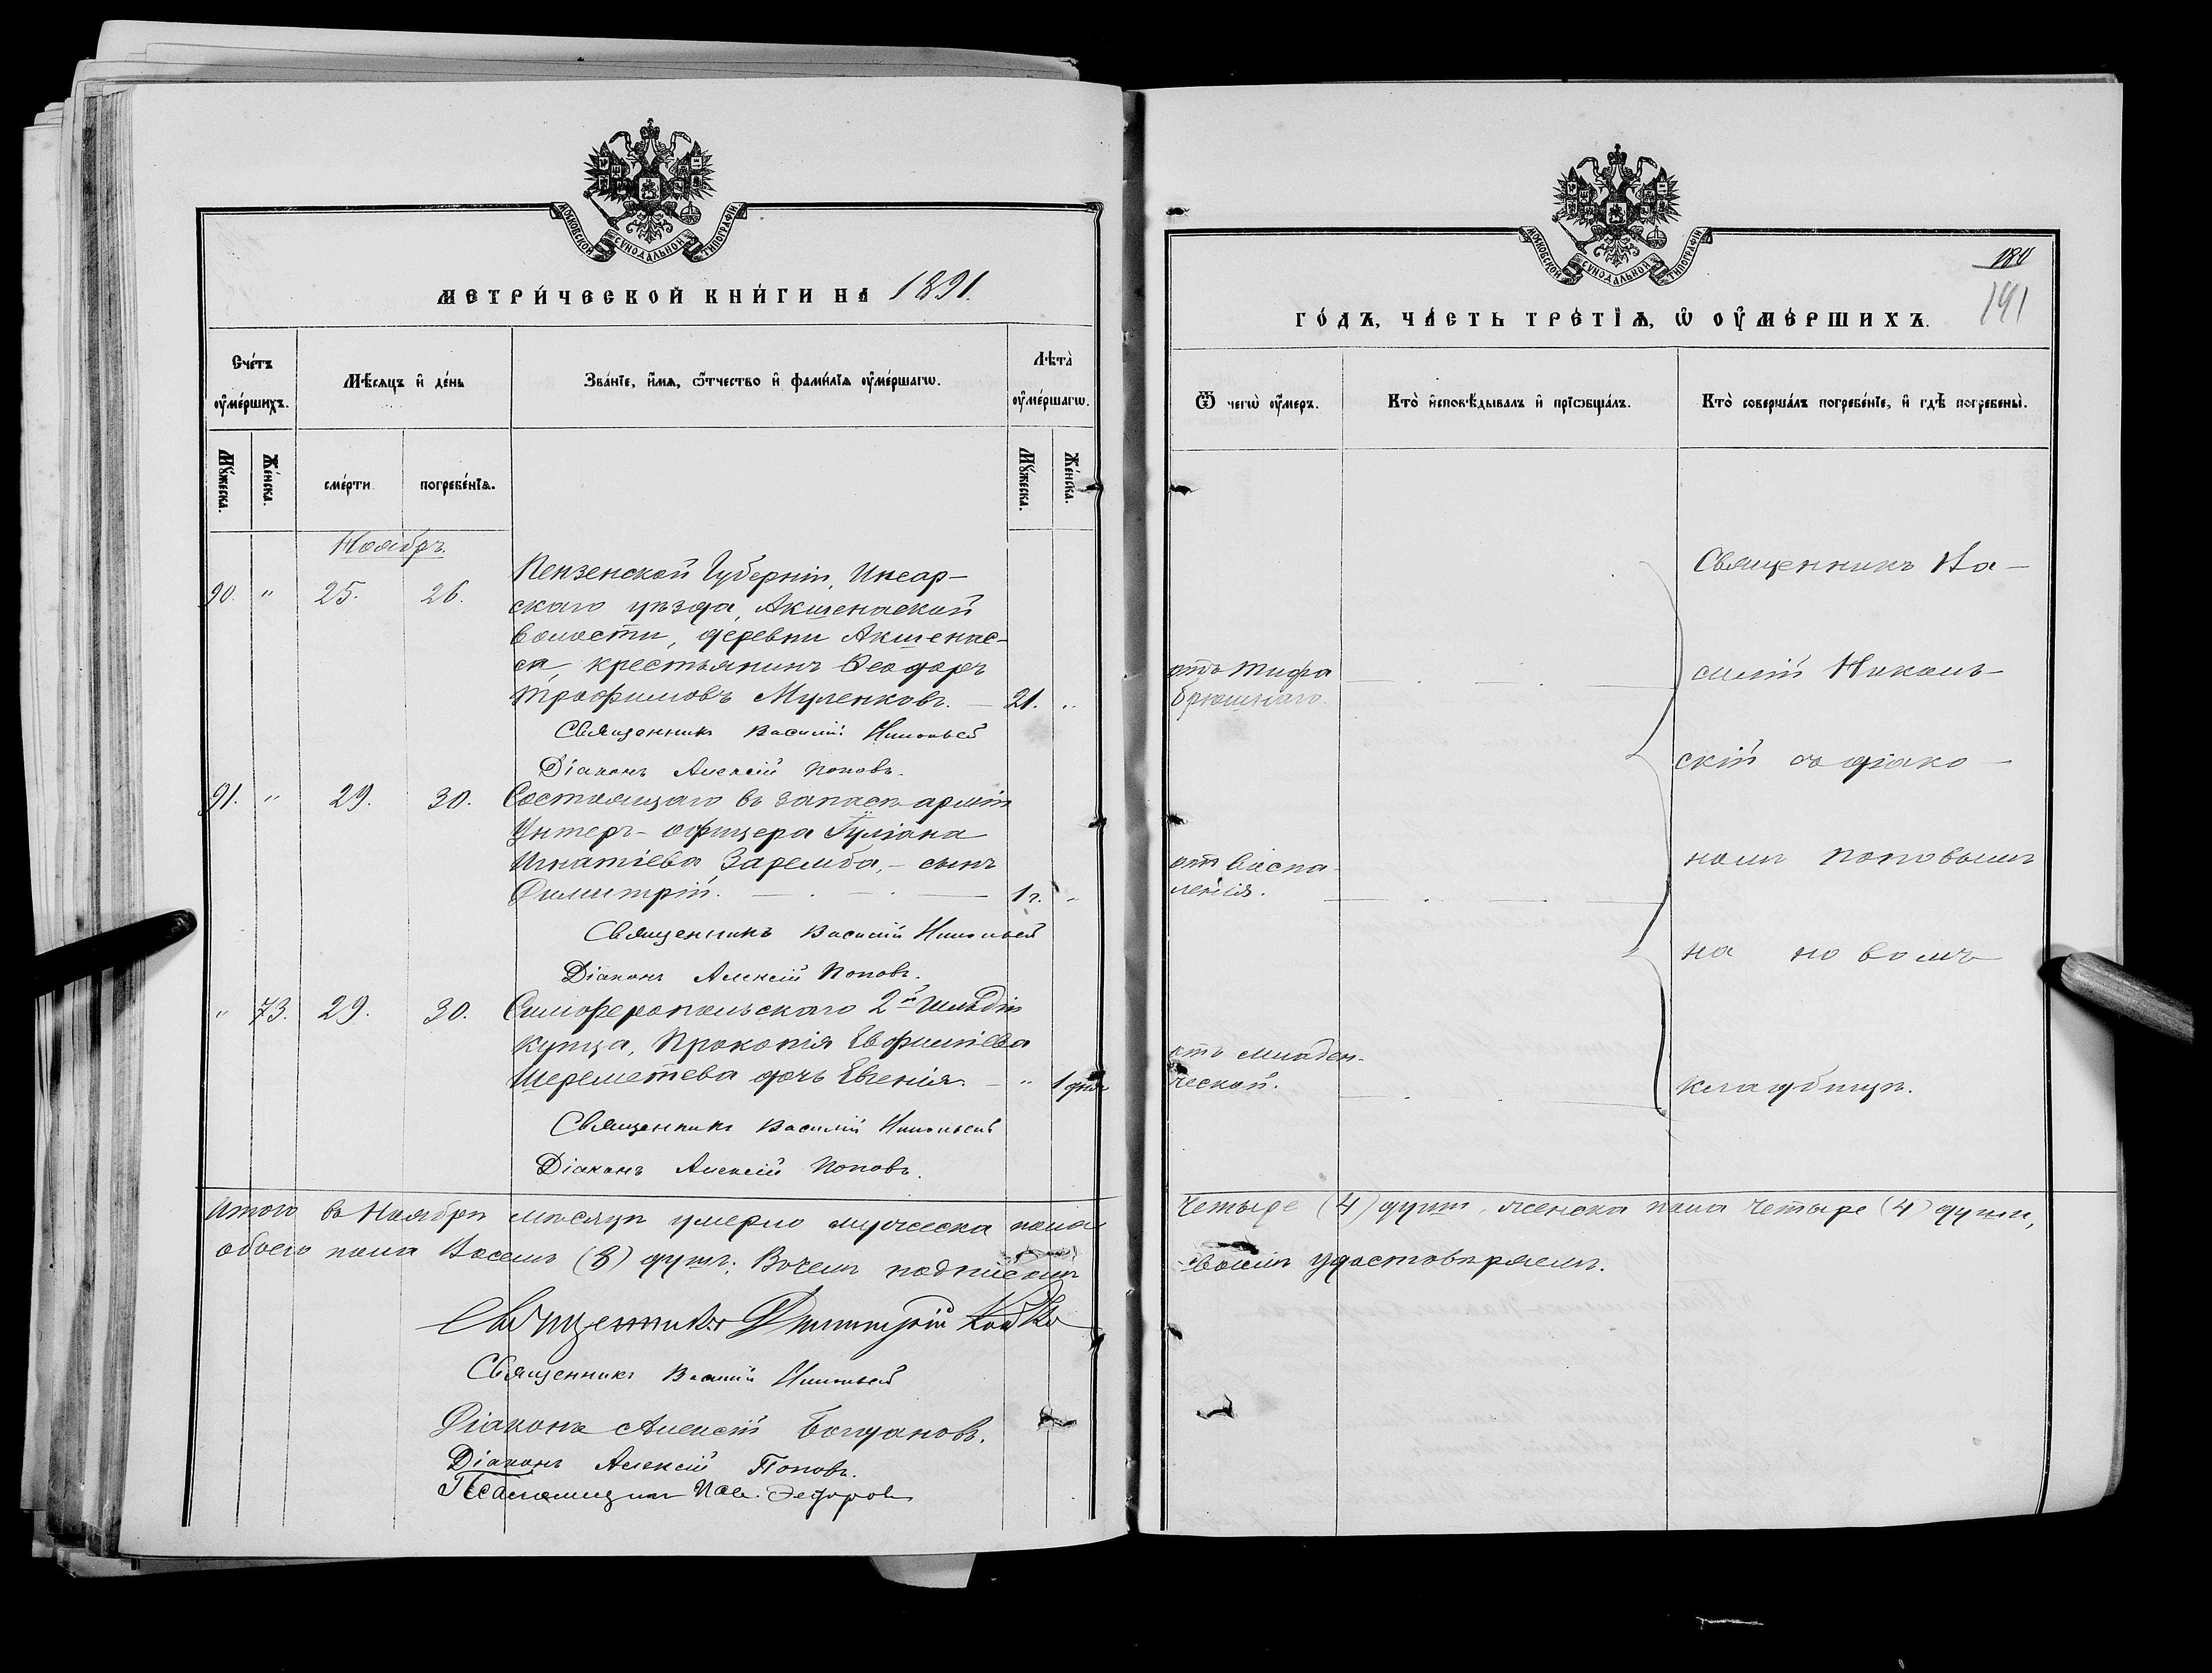 МОСКОВСКОЙ СУНОДАЛЬНОЙ ТИПОГРАФІИ
МЕТРИ́ЧЕСКОЙ КНИ́ГИ НА 1891.
Сче́тъ ᲂу҆ме́ршихъ.
Мѣ́сяцъ и҆ де́нь
Зва́нїе, и҆́мя, ѻ҆́тчество и҆ фамѝлїѧ ᲂу҆ме́ршагѡ.
Лѣта̀ ᲂу҆ме́ршагѡ.
Мꙋ́жеска.
Же́нска.
сме́рти
погребе́нїѧ.
Мꙋ́жеска.
Же́нска.
Ноябрь.
90. " 25. 26. Пензенской Губерніи, Инсар-
скаго уѣзда, Акшенаской
волости, деревни Акшенас-
са, крестьянинъ Ѳеодоръ
Трофимовъ Муленковъ. — 21. "
Священникъ Василій Никольскій
Діаконъ Алексій Поповъ.
91. " 29. 30. Состоящаго въ запасѣ арміи
Унтеръ-офицера Іуліана
Игнатіева Заремба, – сынъ
Димитрій. — 1 г. "
Священникъ Василій Никольскій
Діаконъ Алексій Поповъ.
" 73. 29. 30. Симферопольскаго 2й гильдіи
купца, Прокопія Евфиміева
Шереметева дочь Евгенія. — " 1 дня
Священникъ Василій Никольскій
Діаконъ Алексій Поповъ.
Итого въ Ноябрѣ мѣсяцѣ умерло мужеска пола
обоего пола Восемь (8) душъ; Въ чемъ подписомъ
Священникъ Димитрій Койко
Священникъ Василій Никольскій
Діаконъ Алексій Богдановъ.
Діаконъ Алексій Поповъ.
Псаломщикъ Пав. Федоровъ
МОСКОВСКОЙ СУНОДАЛЬНОЙ ТИПОГРАФІИ
191
ГО́ДЪ, ЧА́СТЬ ТРЕ́ТЇѦ, Ѡ҆ ОУ҆МЕ́РШИХЪ.
Ѿ чегѡ̀ ᲂу҆́меръ.
Кто̀ и҆сповѣ́дывалъ и҆ прїѡбща́лъ.
Кто̀ соверша́лъ погребе́нїе, и҆ гдѣ̀ погребены̀.
Священникъ Ва-
отъ тифа
брюшнаго.
силій Николь-
скій съ діако-
отъ Воспа-
ленія.
номъ Поповымъ
на новомъ
отъ младен-
ческой.
кладбищѣ.
четыре (4) души, женска пола четыре (4) души,
своимъ удостовѣряемъ.